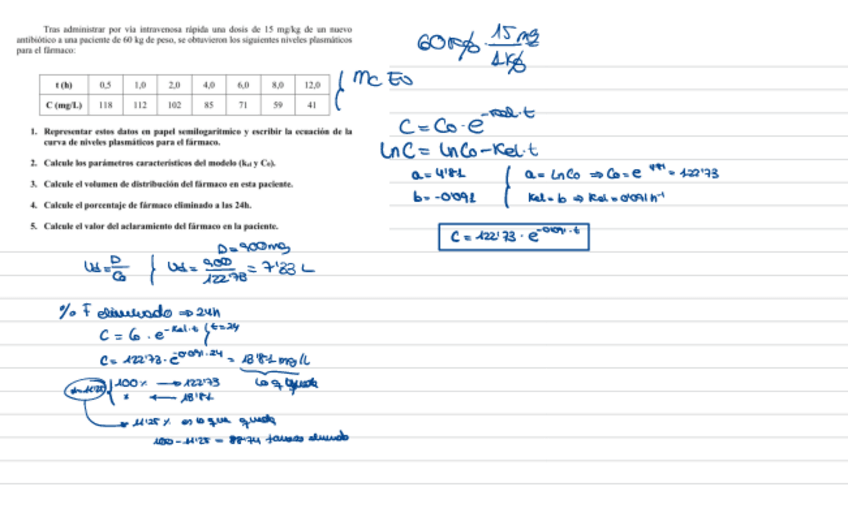 Tras administrar por vía intravenosa rápida una dosis de 15 mg/kg de un nuevo
antibiótico a una paciente de 60 kg de peso, se obtuvieron los siguientes niveles plasmáticos
para el fármaco:
t (h) 0,5 1,0 2,0 4,0 6,0 8,0 12,0
C (mg/L) 118 112 102 85 71 59 41
1. Representar estos datos en papel semilogarítmico y escribir la ecuación de la
curva de niveles plasmáticos para el fármaco.
2. Calcule los parámetros característicos del modelo (kel y C₀).
3. Calcule el volumen de distribución del fármaco en esta paciente.
4. Calcule el porcentaje de fármaco eliminado a las 24h.
5. Calcule el valor del aclaramiento del fármaco en la paciente.
60 kg · 15 mg / 1 kg
C = C₀ · e^-kel·t
lnC = lnC₀ - Kel·t
a = 4'81
b = -0'091
a = LnC₀ ⇒ C₀ = e^4'81 = 122'73
Kel = b ⇒ Kel = 0'091 h⁻¹
C = 122'73 · e^-0'091·t
D = 900mg
Vd = D / C₀
Vd = 900 / 122'73 = 7'33 L
% F eliminado ⇒ 24h
C = C₀ · e^-Kel·t t=24
C = 122'73 · e^-0'091·24 = 13'81 mg/L
lo q queda
100% → 122'73
x ← 13'81
11'25 % es lo que queda
100 - 11'25 = 88'74